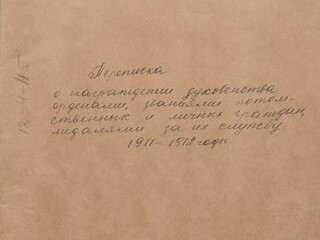 Переписка
о награждении духовенства
орденами, званиями потом-
ственных и личных граждан,
медалями за их службу
1911-1912 годы
12-4-11